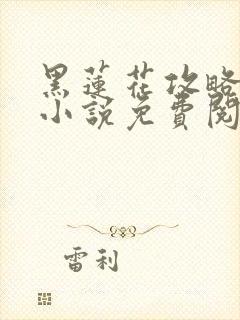 黑蓮花攻略
小說免費閱
雷利